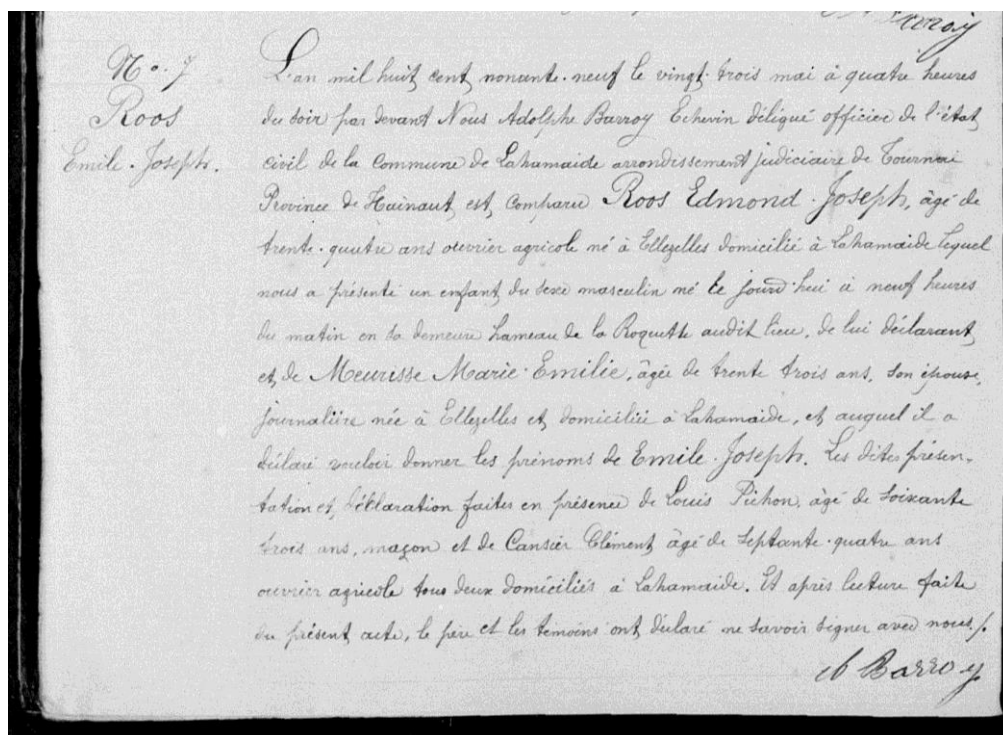 Barroy
No. 7
Roos
Emile. Joseph.
L'an mil huit cent nonante. neuf le vingt. trois mai à quatre heures
du soir par devant Nous Adolphe Barroy Echevin délégué officier de l'état
civil de la Commune de Lahamaide arrondissement judiciaire de Tournai
Province de Hainaut est Comparu Roos Edmond. Joseph, âgé de
trente. quatre ans ouvrier agricole né à Ellezelles domicilié à Lahamaide lequel
nous a présenté un enfant du sexe masculin né ce jourd'hui à neuf heures
du matin en sa demeure hameau de la Roquette audit lieu, de lui déclarant
et de Meurisse Marie. Emilie, âgée de trente trois ans, son épouse,
journalière née à Ellezelles et domiciliée à Lahamaide, et auquel il a
déclaré vouloir donner les prénoms de Emile. Joseph. Les dites présen-
tation et déclaration faites en présence de Louis Pichon, âgé de soixante
trois ans, maçon et de Cansier Clément âgé de septante. quatre ans
ouvrier agricole tous deux domiciliés à Lahamaide. Et après lecture faite
du présent acte, le père et les témoins ont déclaré ne savoir signer avec nous./.
Barroy